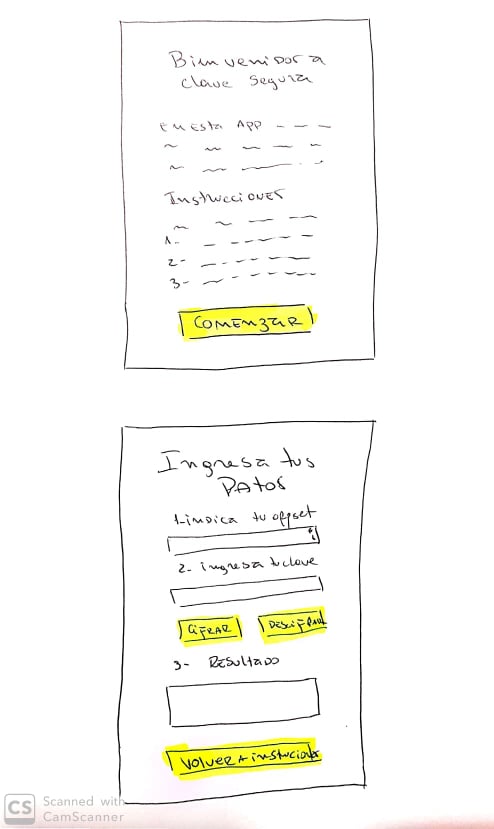 Bienvenidos a
clave segura
En esta App
Instrucciones
1.-
2-
3-
COMENZAR
Ingresa tus
DAtos
1.-indica tu offset
2. ingresa tu clave
CIFRAR
DESCIFRAR
3- RESULTADO
VOLVER A instucciones
CS
Scanned with
CamScanner